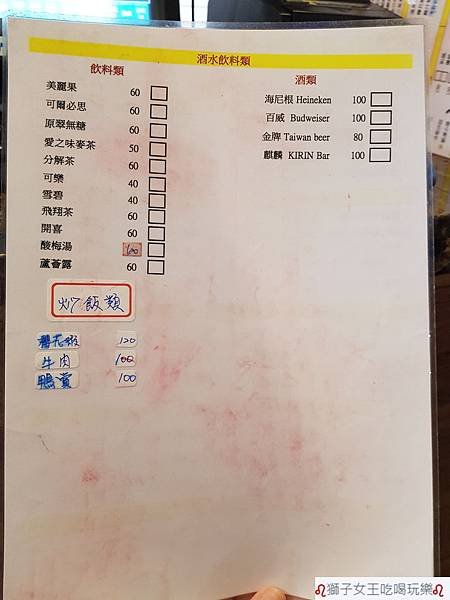 酒水飲料類
飲料類
美麗果 60
可爾必思 60
原翠無糖 60
愛之味麥茶 50
分解茶 60
可樂 40
雪碧 40
飛翔茶 60
開喜 60
酸梅湯 60
蘆薈露 60
酒類
海尼根 Heineken 100
百威 Budweiser 100
金牌 Taiwan beer 80
麒麟 KIRIN Bar 100
炒飯類
櫻花蝦 120
牛肉 100
鴨賞 100
獅子女王吃喝玩樂